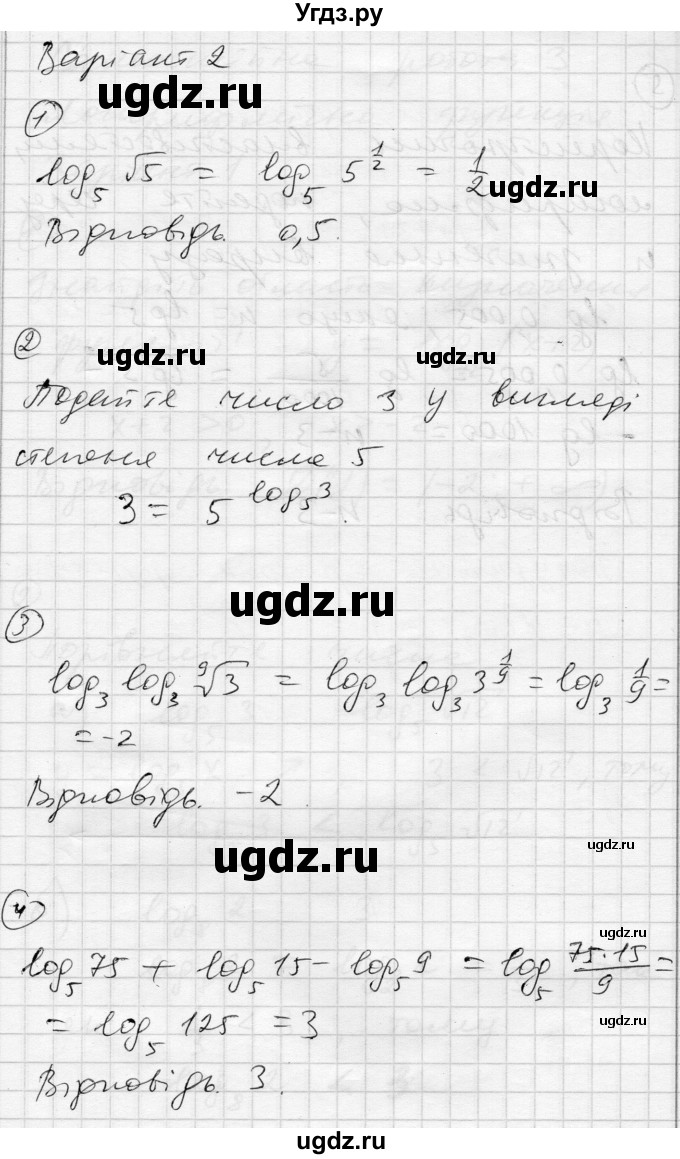 Угдз.ру
Варіант 2
ugdz.ru
1
log₅ √5 = log₅ 5^(1/2) = 1/2
ugdz.ru
Відповідь. 0,5.
2
ugdz.ru ugdz.ru
Подайте число 3 у вигляді
степеня числа 5
3 = 5^(log₅3).
ugdz.ru
3
log₃ log₃ ⁹√3 = log₃ log₃ 3^(1/9) = log₃ 1/9 =
= -2
Відповідь. -2.
ugdz.ru ugdz.ru
4
ugdz.ru
log₅ 75 + log₅ 15 - log₅ 9 = log₅ (75·15)/9 =
= log₅ 125 = 3
ugdz.ru
Відповідь. 3.
ugdz.ru